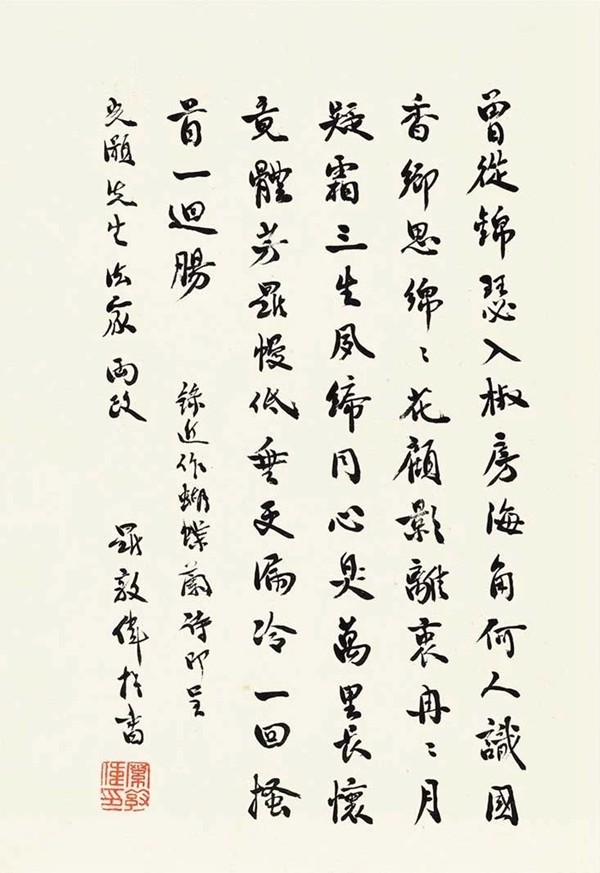 曾從錦瑟入椒房海角何人識國
香鄉思綿〻花顧影離衷冉〻月
疑霜三生夙締同心臭萬里長懷
竟體芳羅幔低垂更漏冷一回搔
首一迴腸
錄近作蝴蝶蘭詩即呈
光灝先生法家兩政
羅敦偉
羅敦偉印